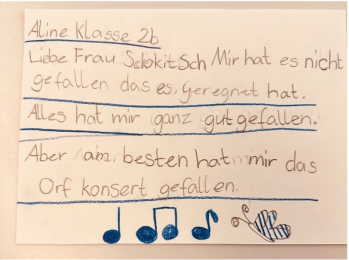 Aline Klasse 2b
Liebe Frau Schokitsch Mir hat es nicht
gefallen das es, Geregnet hat.
Alles hat mir ganz gut gefallen.
Aber am besten hat mir das
Orf konsert gefallen.